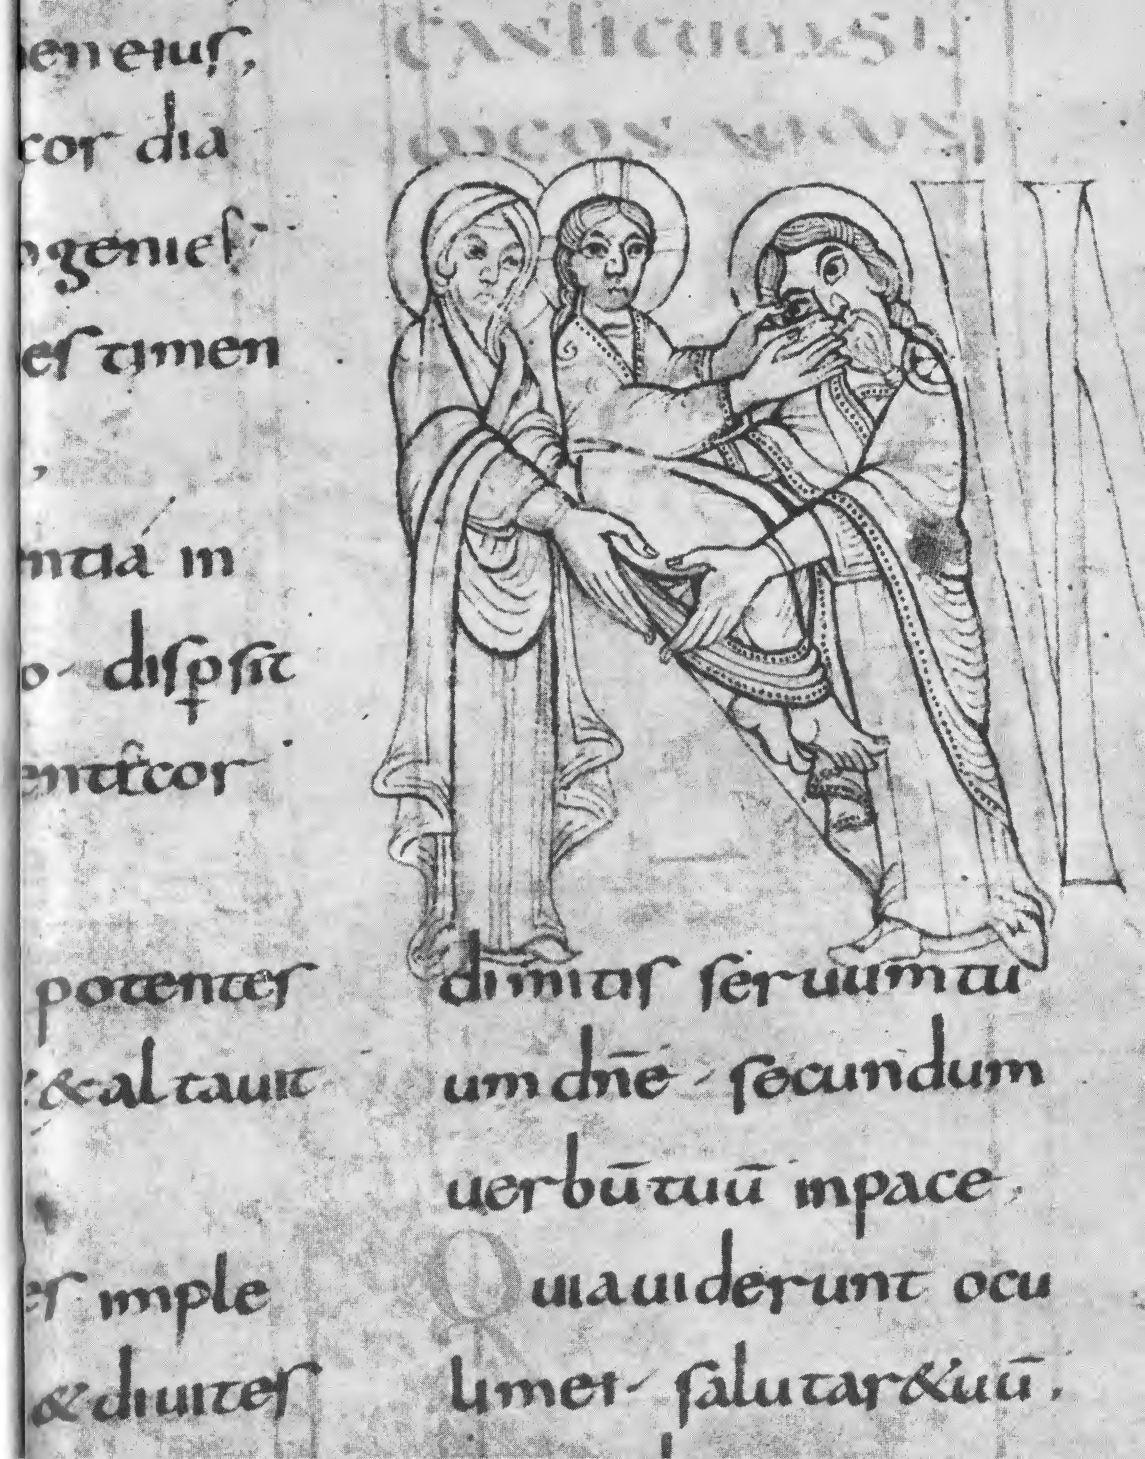 en eius,
cor dia
ogenies
es timen
,
ntiá in
o · disp̱sit
cor
potentes
& altauit
es imple
& diuites
CANTICUM SI
N
dimitis seruum tu
um dn̄e · secundum
uerbū tuū in pace,
Quia uiderunt ocu
li mei · salutar&uū,